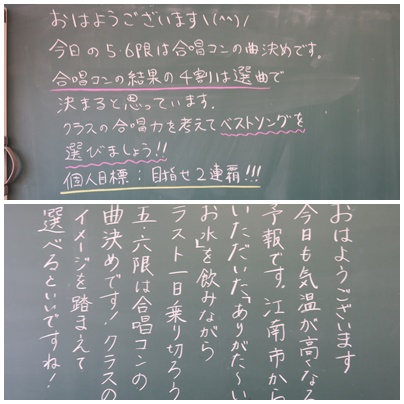 おはようございます\(^^)/
今日の5・6限は合唱コンの曲決めです。
合唱コンの結果の4割は選曲で
決まると思っています。
クラスの合唱力を考えてベストソングを
選びましょう!!
個人目標:目指せ2連覇!!!
おはようございます
今日も気温が高くなる
予報です。江南市から
いただいた「ありがた〜い
お水」を飲みながら
ラスト一日乗り切ろう
五・六限は合唱コンの
曲決めです!クラスの
イメージを踏まえて
選べるといいですね!